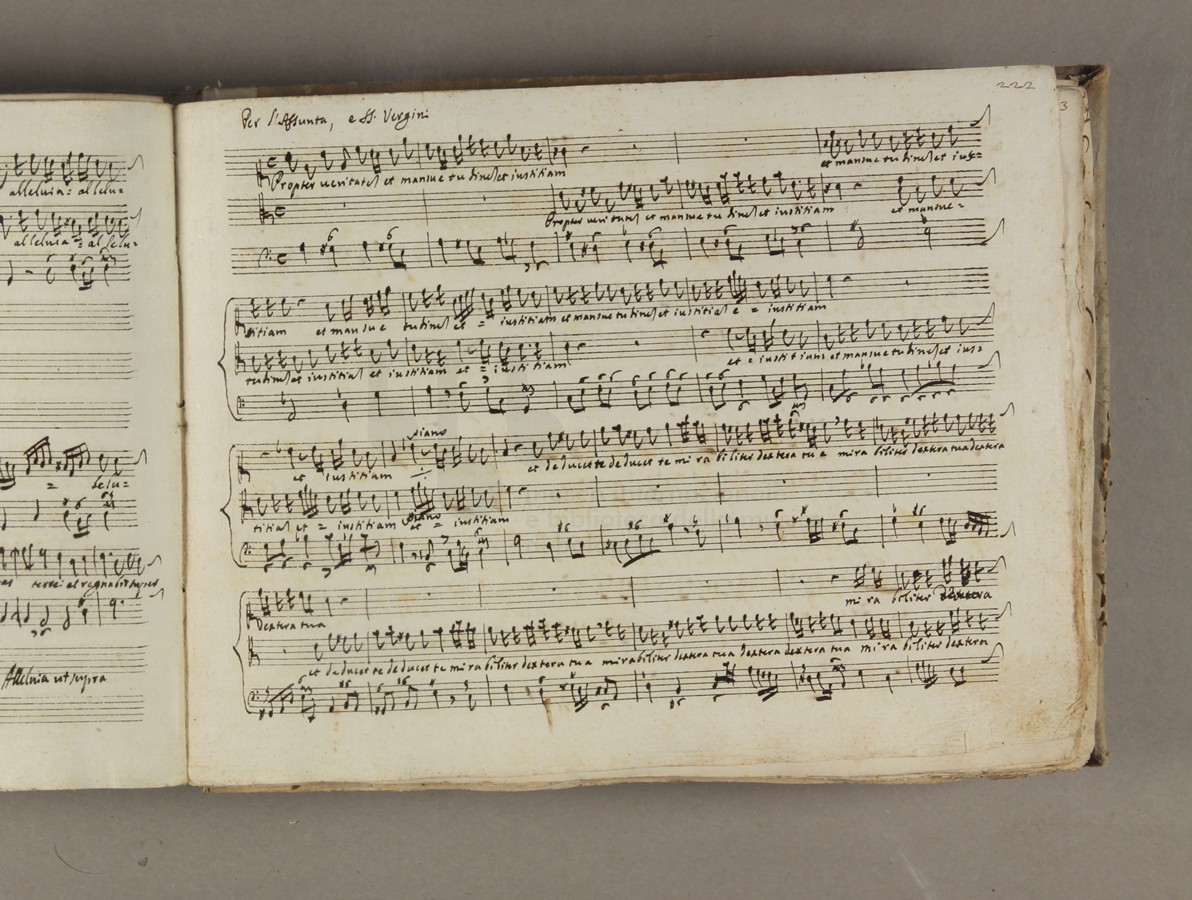 alleluia: allelu=
alleluia = allelu=
= lelu=
terrei et regnabit super
Alleluia ut supra
222
3
Per l'Assunta, e SS. Vergini
et mansuetudinem et ius=
Propter veritatem et mansuetudinem et iustitiam
Propter veritatem et mansuetudinem et iustitiam et mansue=
titiam et mansue tudinem et = iustitiam et mansuetudinem et iustitiam e = iustitiam
tudinem et iustitiam et iustitiam et = iustitiam et = iustitiam et mansuetudinem et ius=
piano
et iustitiam et deducet te deducet te mirabiliter dextera tua mirabiliter dextera tua dextera
titiam et = iustitiam piano et = iustitiam
dextera tua mirabiliter dextera
et deducet te deducet te mirabiliter dextera tua mirabiliter dextera tua dextera dextera tua mirabiliter dextera